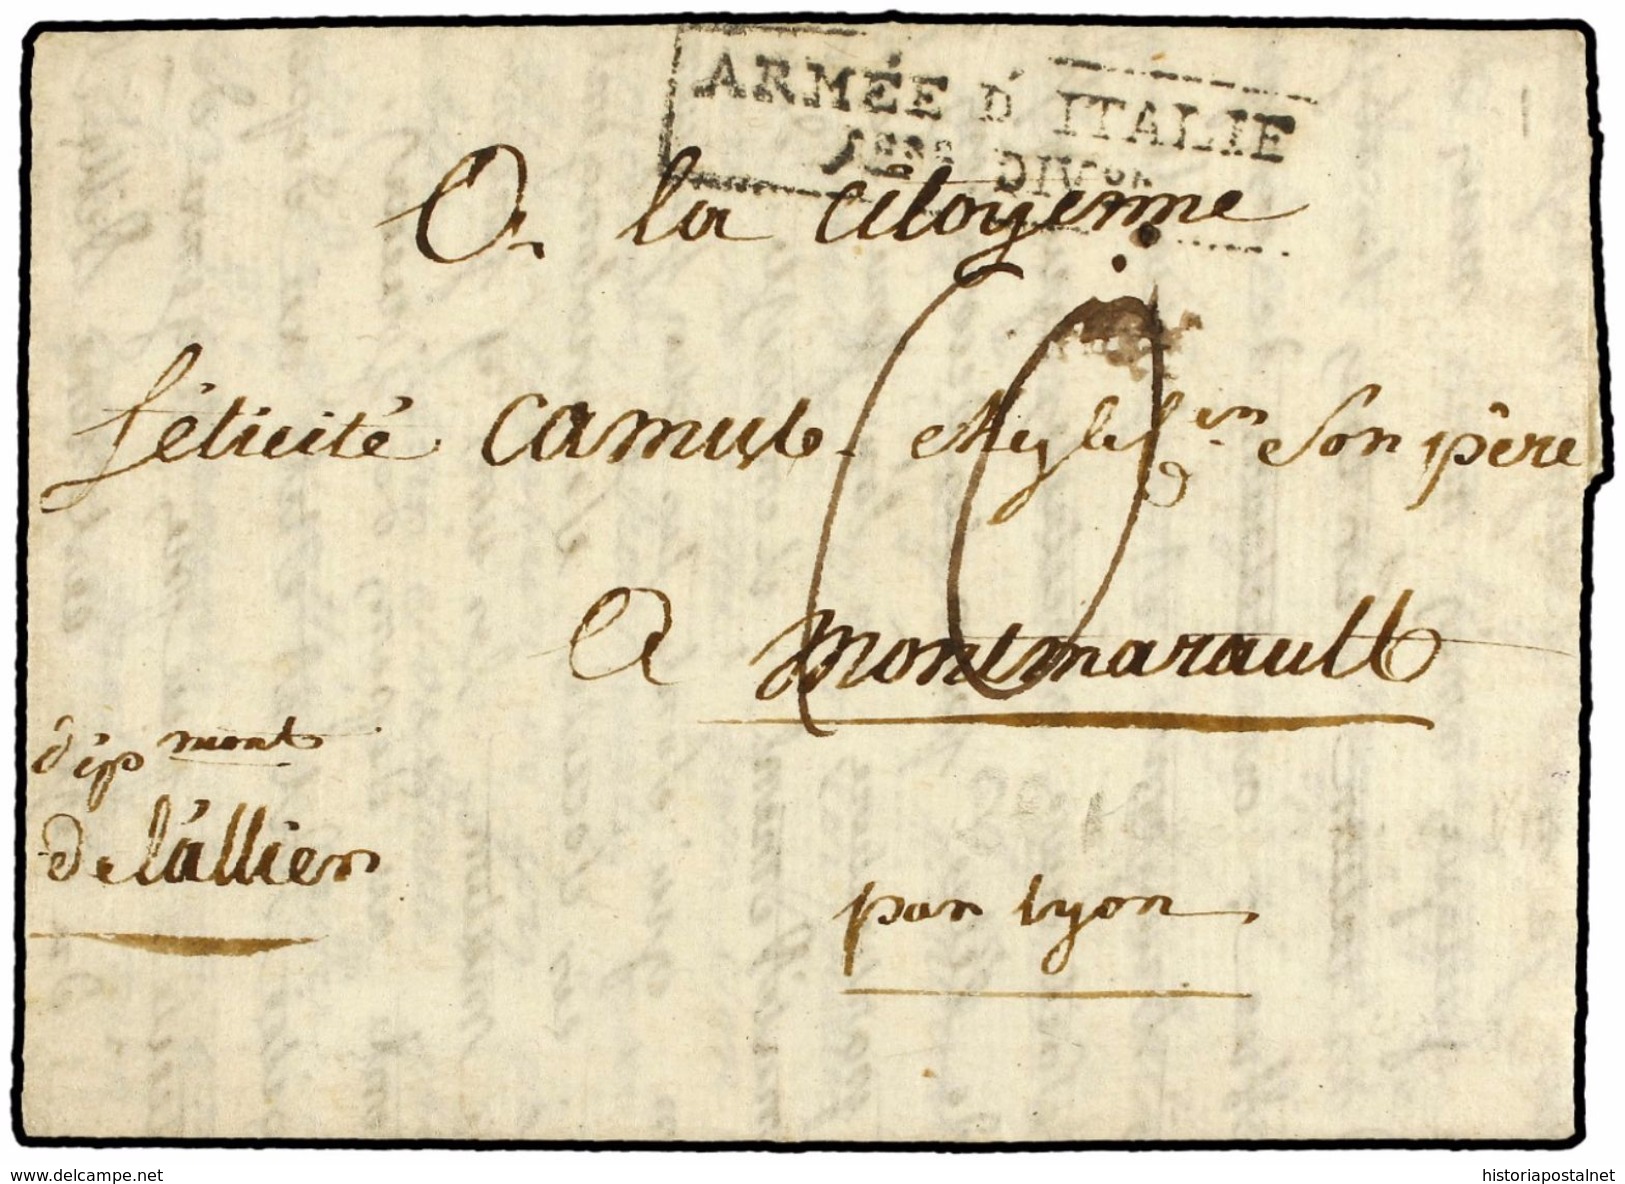 ARMÉE D'ITALIE
DIV.on
A la Citoyenne
félicité Camus chez son père
10
A Montmarault
dép mont
De l'allier
par Lyon
www.delcampe.net
historiapostalnet